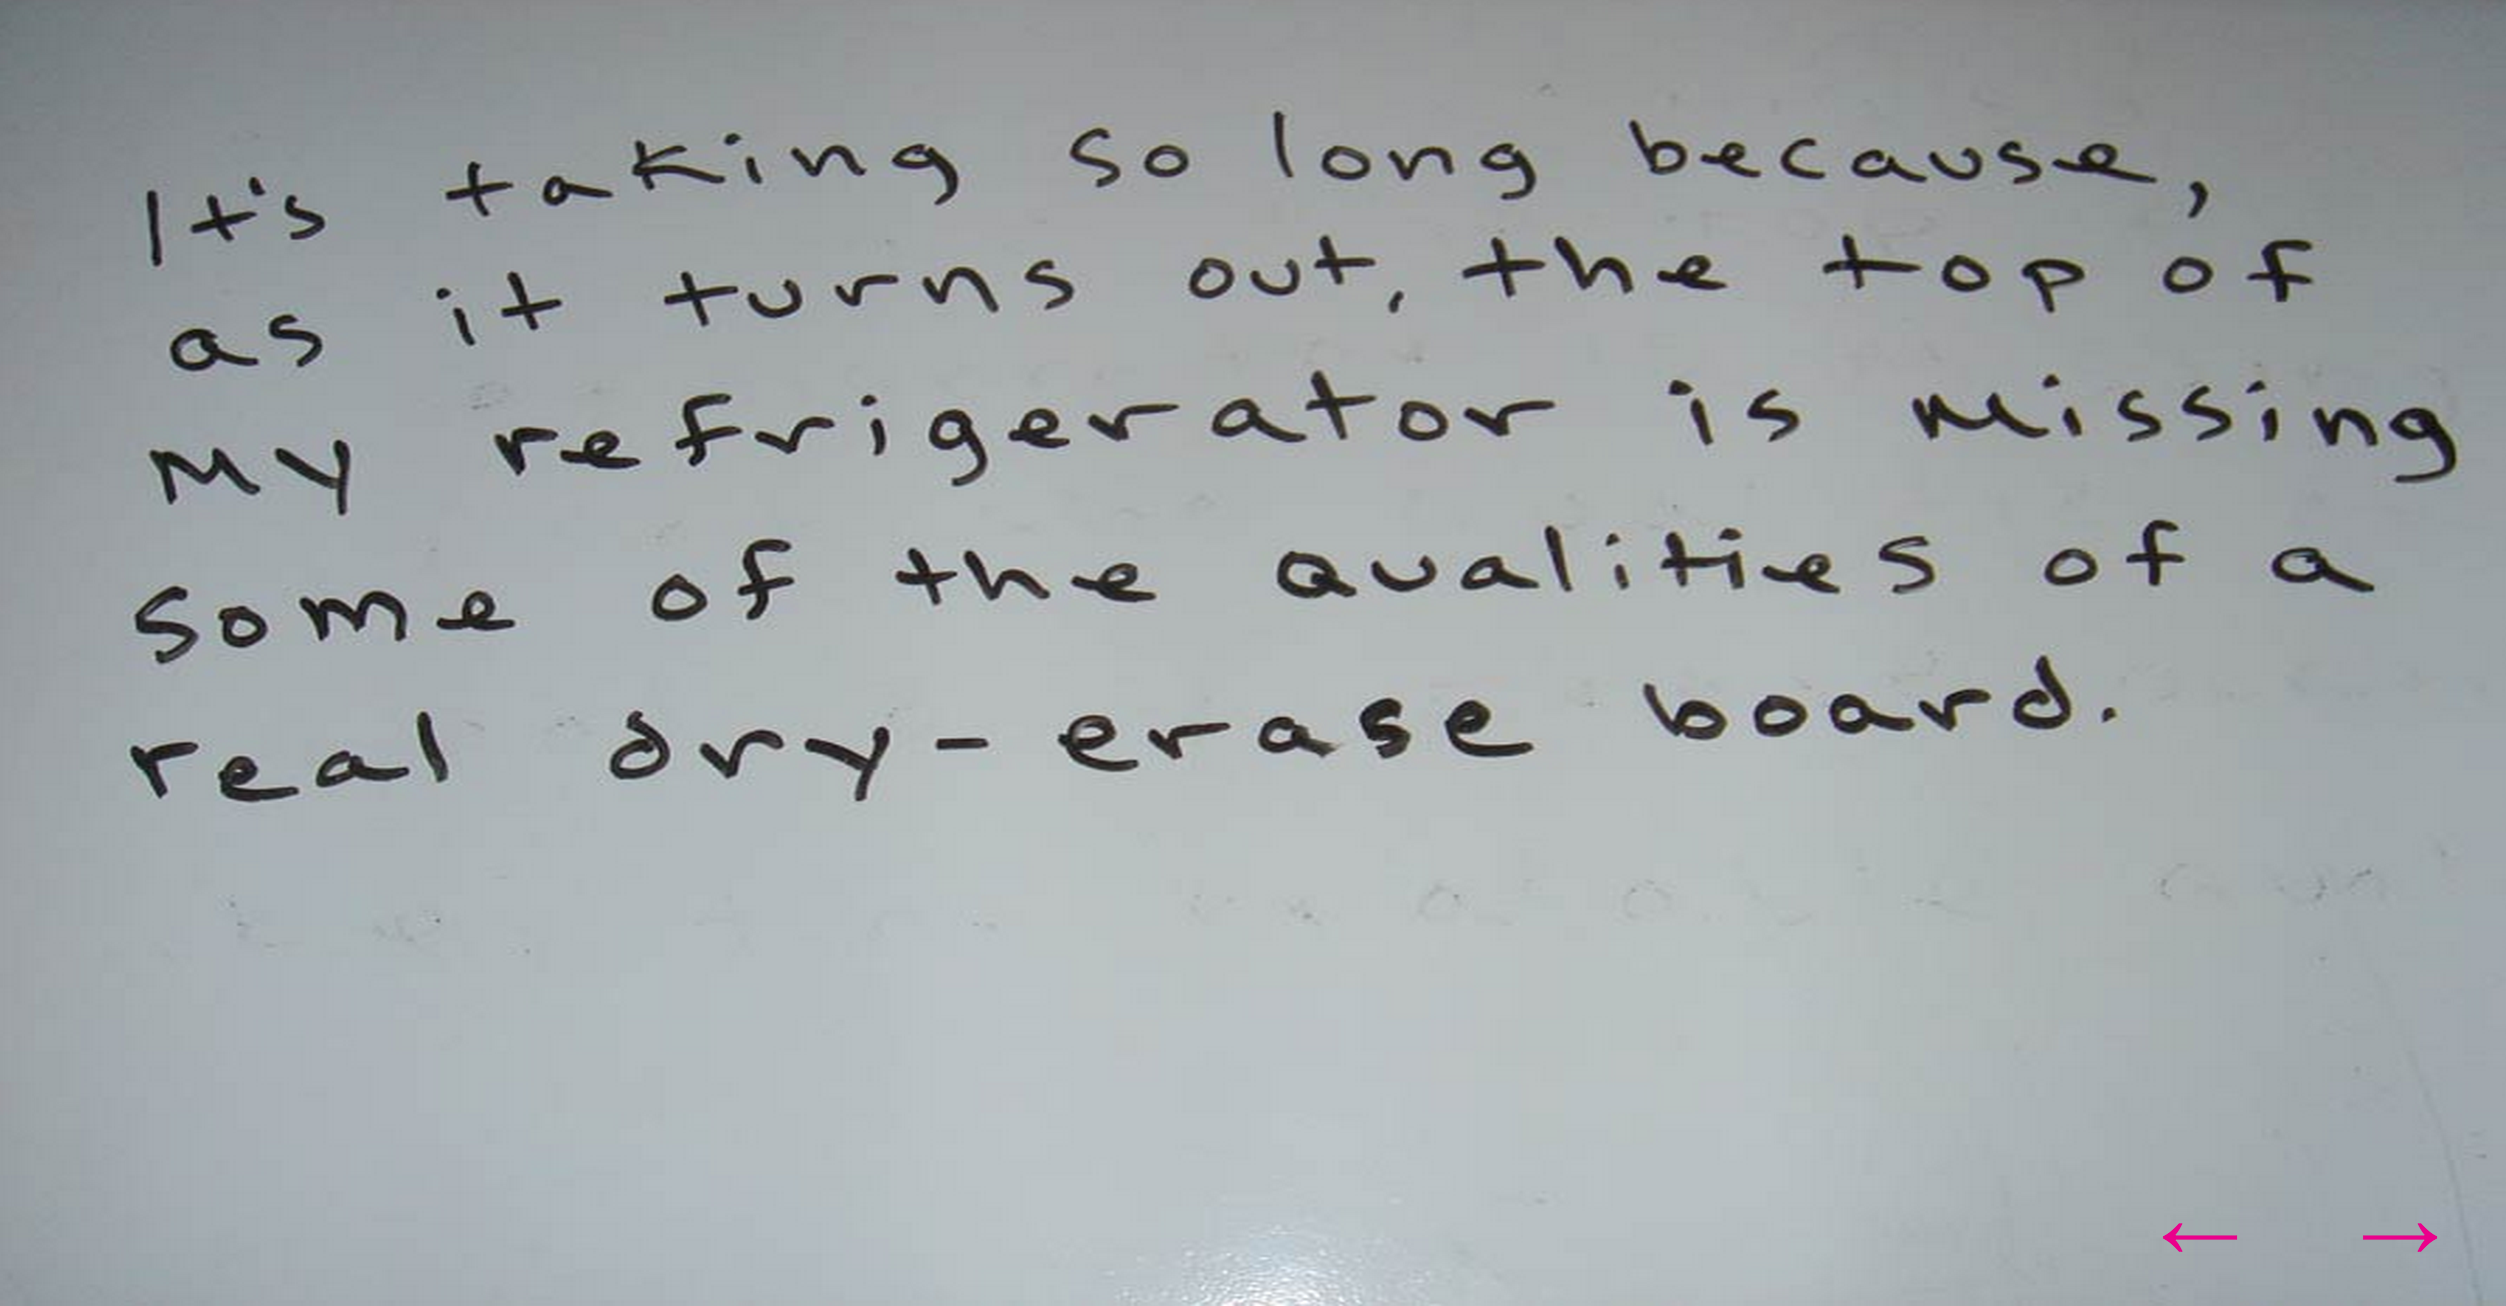 It's taking so long because,
as it turns out, the top of
my refrigerator is missing
some of the qualities of a
real dry-erase board.
← →